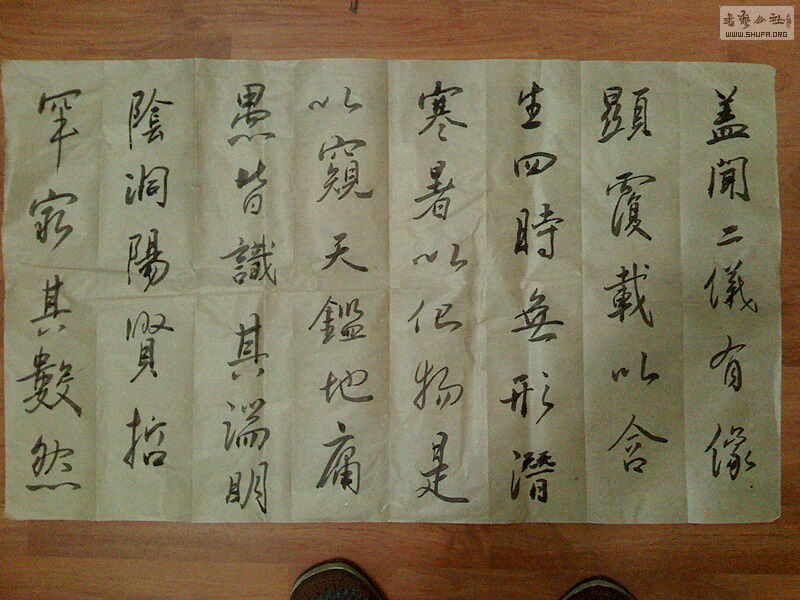 盖聞二儀有像
顯覆載以含
生四時無形潛
寒暑以化物是
以窺天鑑地庸
愚皆識其端明
陰洞陽賢哲
罕窮其數然
書藝公社
WWW.SHUFA.ORG